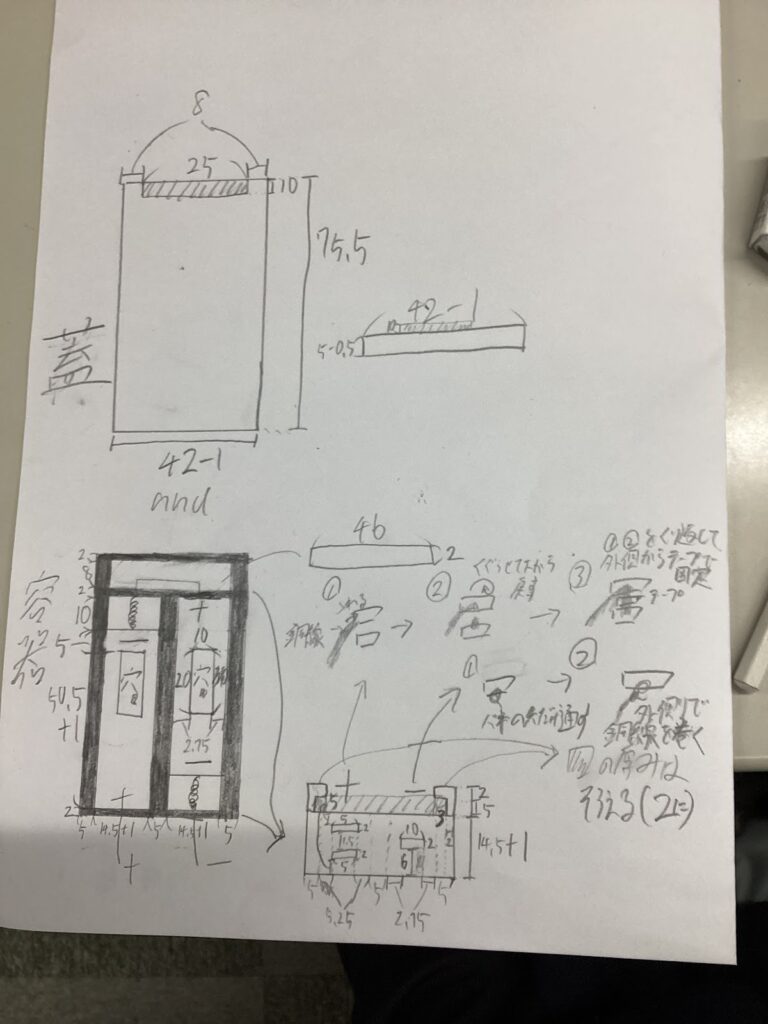 8
25
10
75.5
蓋
42-1
42-1
5-0.5
容器
2
8
2
10
5
50.5
+1
2
+
10
穴
20
穴
2.75
+
5
14.5+1
5
14.5+1
5
+
46
2
①
銅線→
②
くぐらせてから
戻す
③
①②をくり返して
外側からテープで
固定
テープ
①
バネの先だけ通す
②
外側で
銅線を巻く
の厚みは
そろえる(2に)
+
2
5
14.5+1
5
2
5
2
10
2
6
5
5
5
5.25
2.75